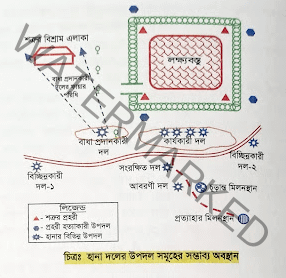 শত্রুর বিশ্রাম এলাকা
লক্ষ্যবস্তু
বাধা প্রদানকারী
দলের ফায়ার
পরিধি
বাধা প্রদানকারী
দল
কার্যকারী দল
বিচ্ছিন্নকারী
দল-২
বিচ্ছিন্নকারী
দল-১
সংরক্ষিত দল
আবরণী দল
চূড়ান্ত মিলনস্থান
প্রত্যাহার মিলনস্থান
লিজেন্ড
শত্রুর প্রহরী
প্রহরী হত্যাকারী উপদল
হানার বিভিন্ন উপদল
চিত্রঃ হানা দলের উপদল সমূহের সম্ভাব্য অবস্থান
WATERMARKED